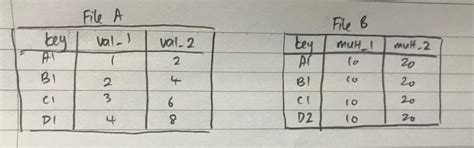 File A
File B
key val_1 val_2
key mult_1 mult_2
A1 1 2
A1 10 20
B1 2 4
B1 10 20
C1 3 6
C1 10 20
D1 4 8
D2 10 20